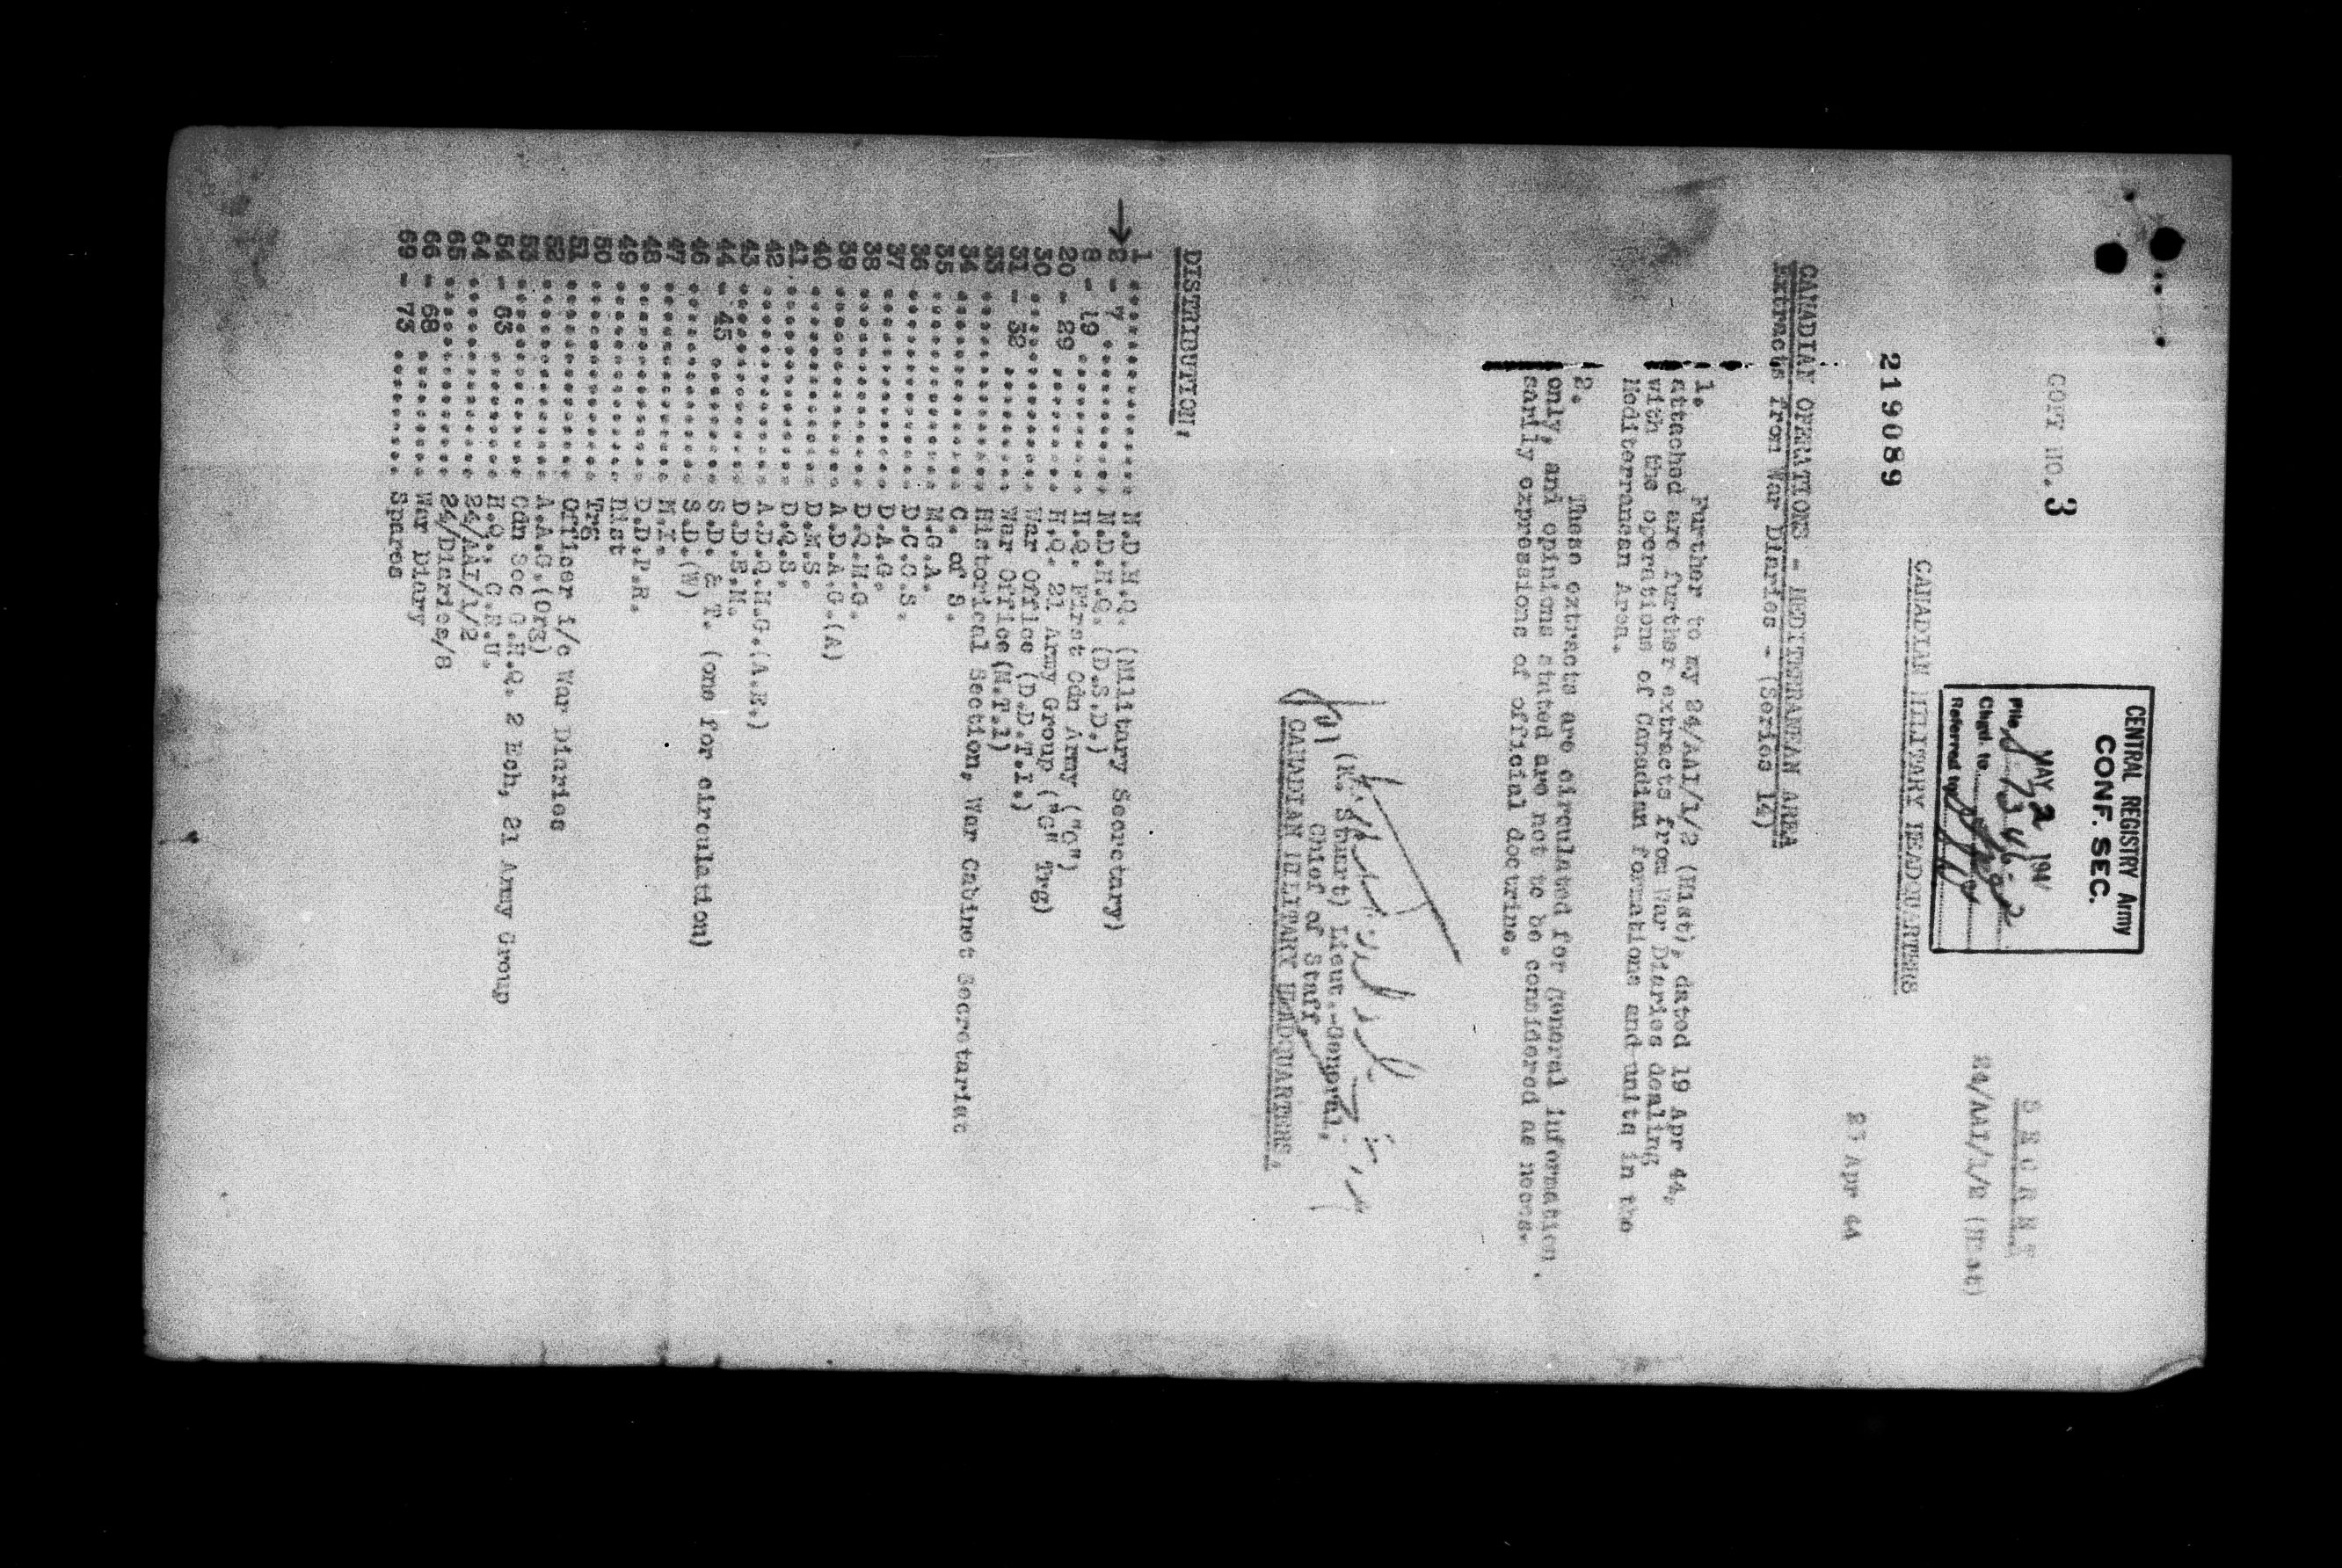 COPY NO. 3
SECRET
24/AAI/1/2 (Hist)
CENTRAL REGISTRY Army
CONF. SEC.
MAY 2 194
File
Chgd. to
Referred to
CANADIAN MILITARY HEADQUARTERS
219089
Apr 44
CANADIAN OPERATIONS - MEDITERRANEAN AREA
Extracts from War Diaries - (Series 14)
1. Further to my 24/AAI/1/2 (Hist), dated 19 Apr 44,
attached are further extracts from War Diaries dealing
with the operations of Canadian formations and units in the
Mediterranean Area.
2. These extracts are circulated for general information
only, and opinions stated are not to be considered as neces-
sarily expressions of official doctrine.
(K. Stuart) Lieut.-General,
Chief of Staff,
CANADIAN MILITARY HEADQUARTERS.
DISTRIBUTION,
1 .................. N.D.H.Q. (Military Secretary)
2 - 7 .............. N.D.H.Q. (D.S.D.)
8 - 19 ............. H.Q. First Cdn Army ("G")
20 - 29 ............ H.Q. 21 Army Group ("G" Trg)
30 ................. War Office (D.D.T.I.)
31 - 32 ............ War Office (M.T.1)
33 ................. Historical Section, War Cabinet Secretariat
34 ................. C. of S.
35 ................. M.G.A.
36 ................. D.C.G.S.
37 ................. D.A.G.
38 ................. D.Q.M.G.
39 ................. A.D.A.G.(A)
40 ................. D.M.S.
41 ................. D.Q.S.
42 ................. A.D.Q.M.G.(A.E.)
43 ................. D.D.E.M.
44 - 45 ............ S.D. & T. (one for circulation)
46 ................. S.D.(W)
47 ................. M.I.
48 ................. D.D.P.R.
49 ................. Hist
50 ................. Trg
51 ................. Officer i/c War Diaries
52 ................. A.A.G.(Org)
53 ................. Cdn Sec G.H.Q. 2 Ech, 21 Army Group
54 - 63 ............ H.Q., C.R.U.
64 ................. 24/AAI/1/2
65 ................. 24/Diaries/8
66 - 68 ............ War Diary
69 - 73 ............ Spares